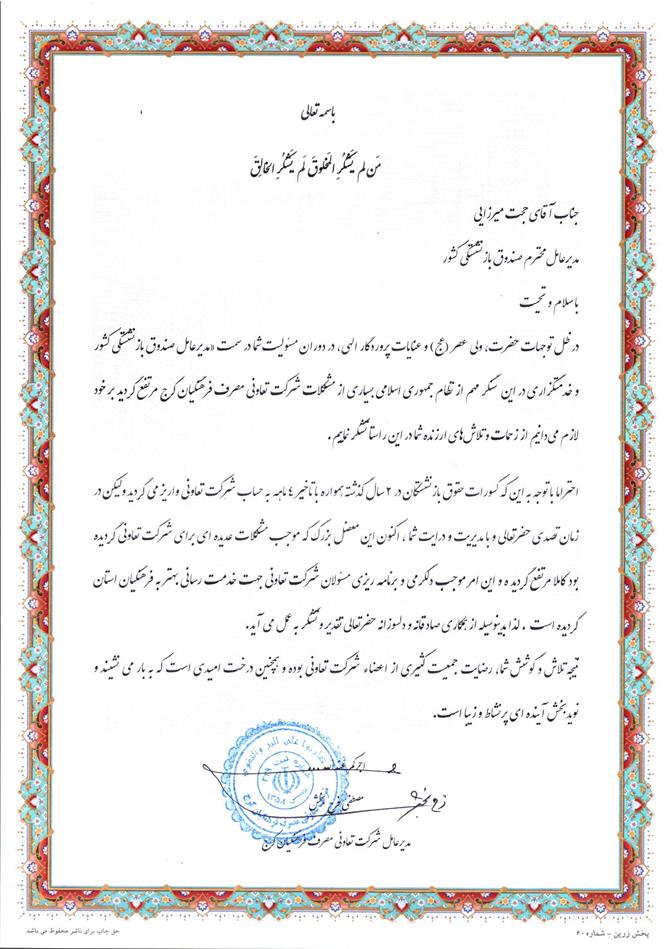 باسمه تعالی
مَن لم یَشکُرِ المَخلوقَ لَم یَشکُرِ الخالِقَ
جناب آقای حجت میرزایی
مدیرعامل محترم صندوق بازنشستگی کشور
باسلام و تحیت
در ظل توجهات حضرت، ولی عصر (عج) و عنایات پروردگار الهی، در دوران مسئولیت شما در سمت «مدیرعامل صندوق بازنشستگی کشور
و خدمتگزاری در این سنگر مهم از نظام جمهوری اسلامی بسیاری از مشکلات شرکت تعاونی مصرف فرهنگیان کرج مرتفع گردید بر خود
لازم می دانیم از زحمات و تلاش های ارزنده شما در این راستا تشکر نماییم .
احتراما با توجه به این که کسورات حقوق بازنشستگان در ۲ سال گذشته همواره با تاخیر ٤ ماهه به حساب شرکت تعاونی واریز می گردید ولیکن در
زمان تصدی حضرتعالی و با مدیریت و درایت شما ، اکنون این معضل بزرگ که موجب مشکلات عدیده ای برای شرکت تعاونی گردیده
بود کاملا مرتفع گردیده و این امر موجب دلگرمی و برنامه ریزی مسئولان شرکت تعاونی جهت خدمت رسانی بهتر به فرهنگیان استان
گردیده است . لذا بدینوسیله از همکاری صادقانه و دلسوزانه حضرتعالی تقدیر و تشکر به عمل می آید.
نتیجه تلاش و کوشش شما، رضایت جمعیت کثیری از اعضاء شرکت تعاونی بوده و همچنین درخت امیدی است که به بار می نشیند و
نوید بخش آینده ای پر نشاط و زیبا است.
تعاونوا علی البر والتقوی
اجرکم عندالله ....
شماره ثبت ۳۰۹
۱۳۵۸
مصطفی فرح بخش
مدیرعامل شرکت تعاونی مصرف فرهنگیان کرج
پخش زرین - شماره ۶۰
حق چاپ برای ناشر محفوظ می باشد